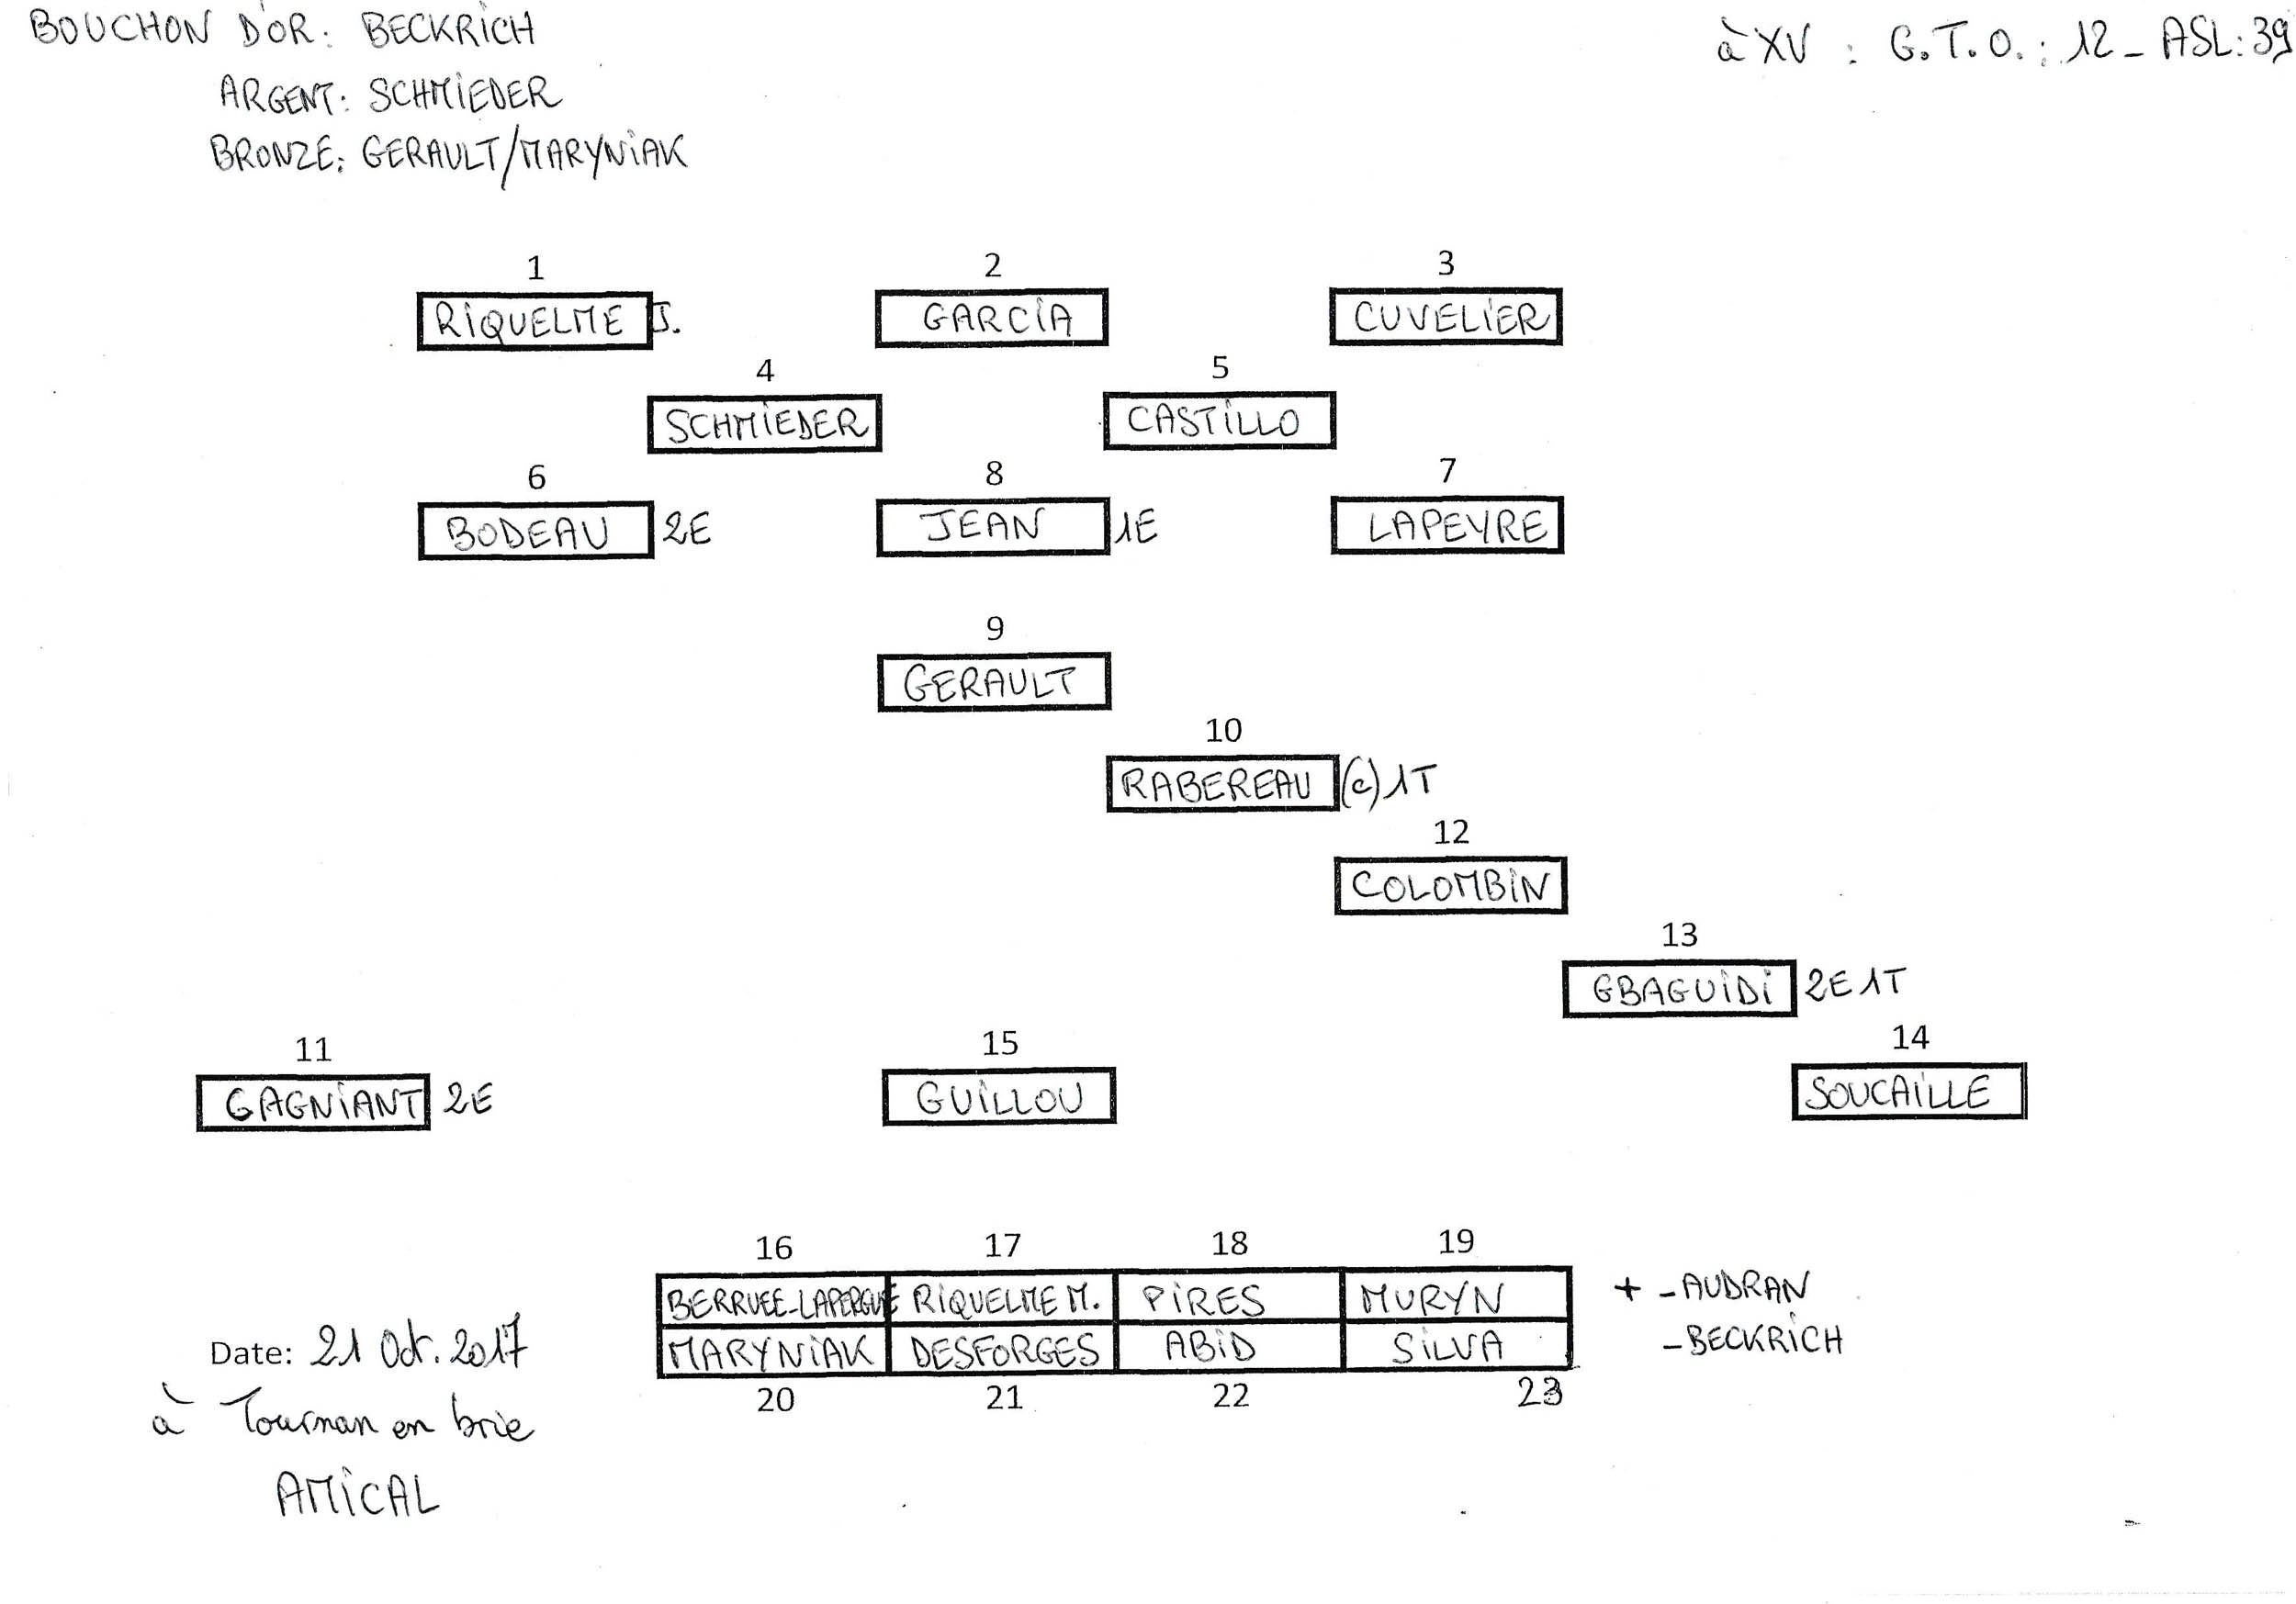 BOUCHON D'OR: BECKRICH
à XV : G.T.O. : 12 - ASL: 39
ARGENT: SCHMIEDER
BRONZE: GERAULT/MARYNIAK
1 2 3
RIQUELME J. GARCIA CUVELIER
4 5
SCHMIEDER CASTILLO
6 8 7
BODEAU 2E JEAN 1E LAPEYRE
9
GERAULT
10
RABEREAU (c) 1T
12
COLOMBIN
13
GBAGUIDI 2E 1T
11 15 14
GAGNIANT 2E GUILLOU SOUCAILLE
16 17 18 19
BERRUEE-LAPERGUE RIQUELME M. PIRES MURYN + - AUDRAN
MARYNIAK DESFORGES ABID SILVA - BECKRICH
20 21 22 23
Date: 21 Oct. 2017
à Tournan en brie
AMICAL